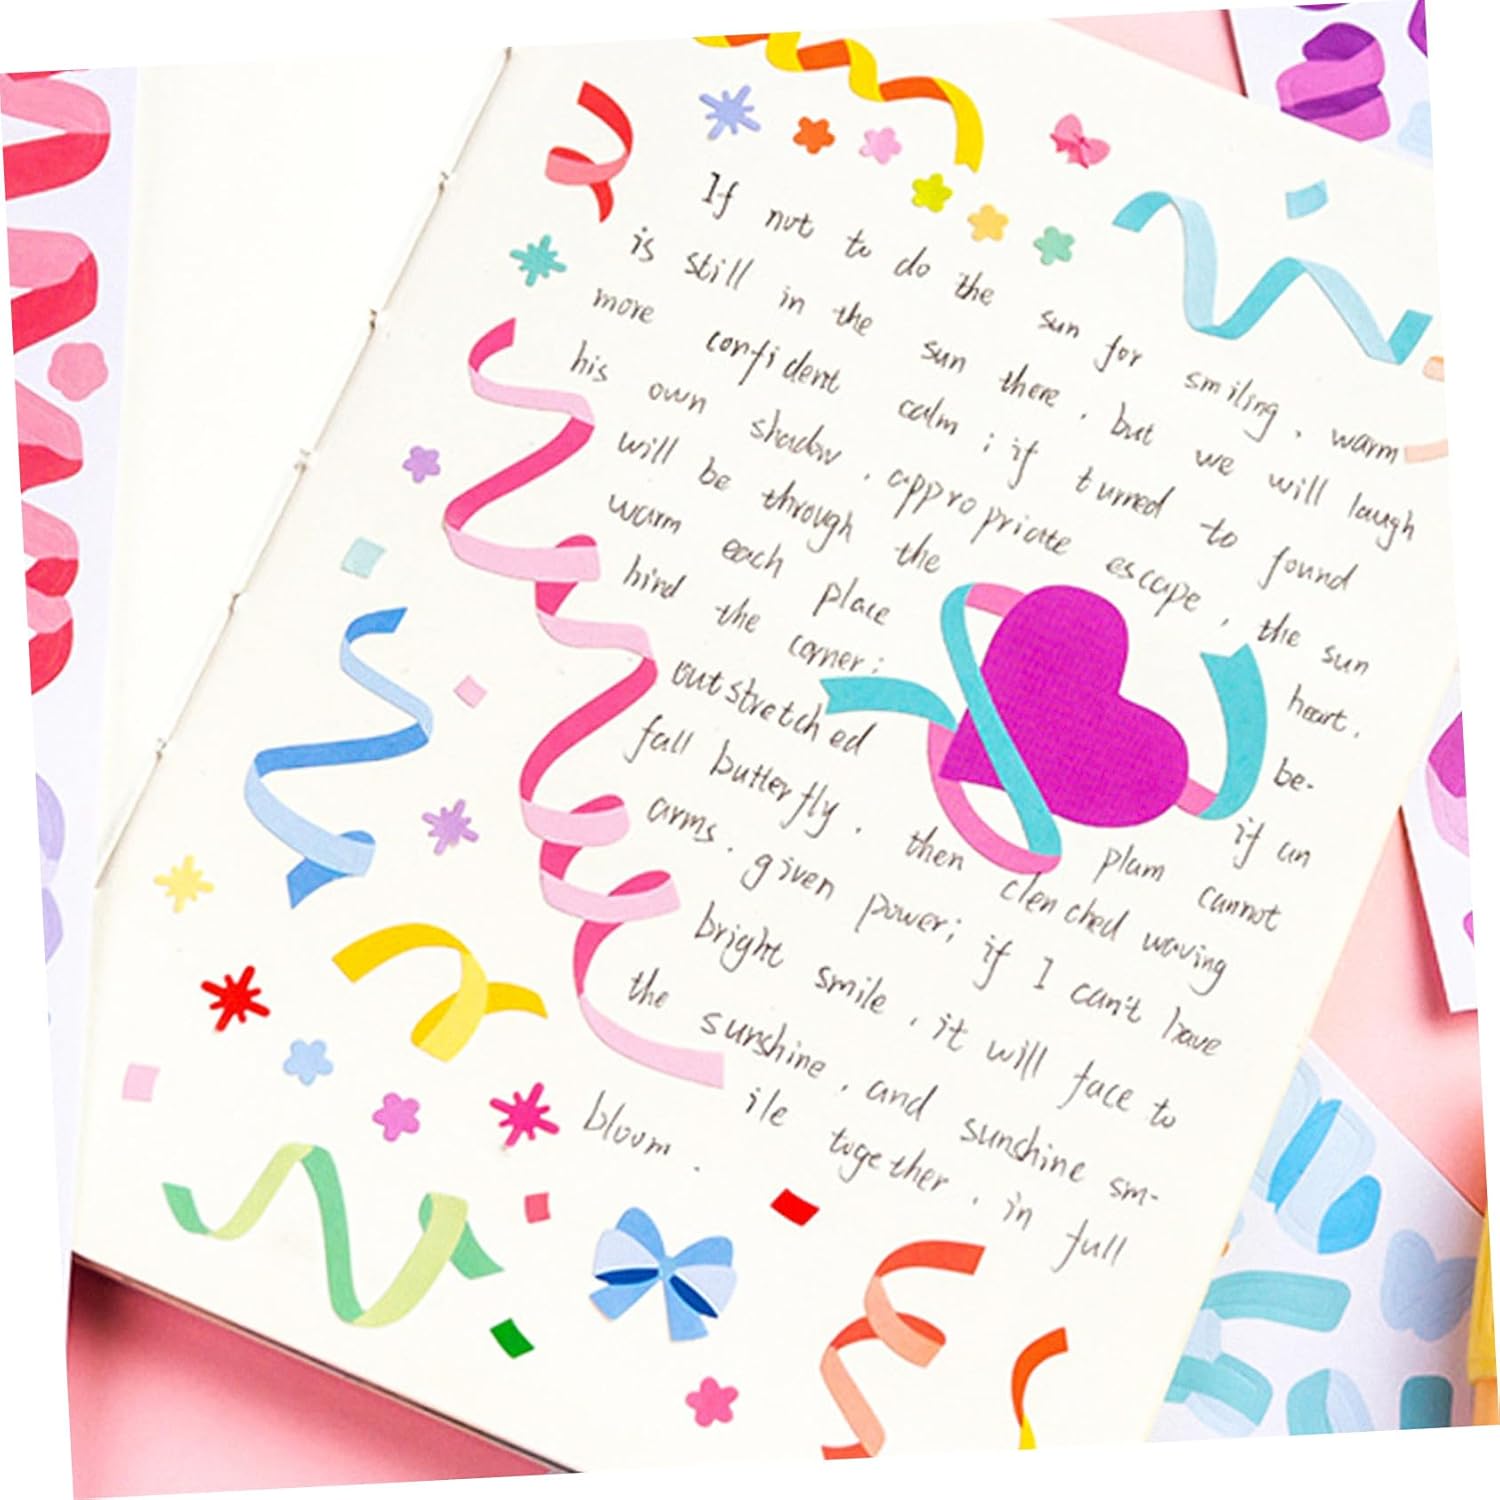 If not to do the sun for smiling, warm
is still in the sun there, but we will laugh
more confident calm; if turned to found
his own shadow, appropriate escape, the sun
will be through the heart.
warm each place be-
hind the corner; if an
outstretched plam cannot
fall butterfly, then clenched waving
arms, given power; if I can't have
bright smile, it will face to
the sunshine, and sunshine sm-
ile together, in full
bloom.